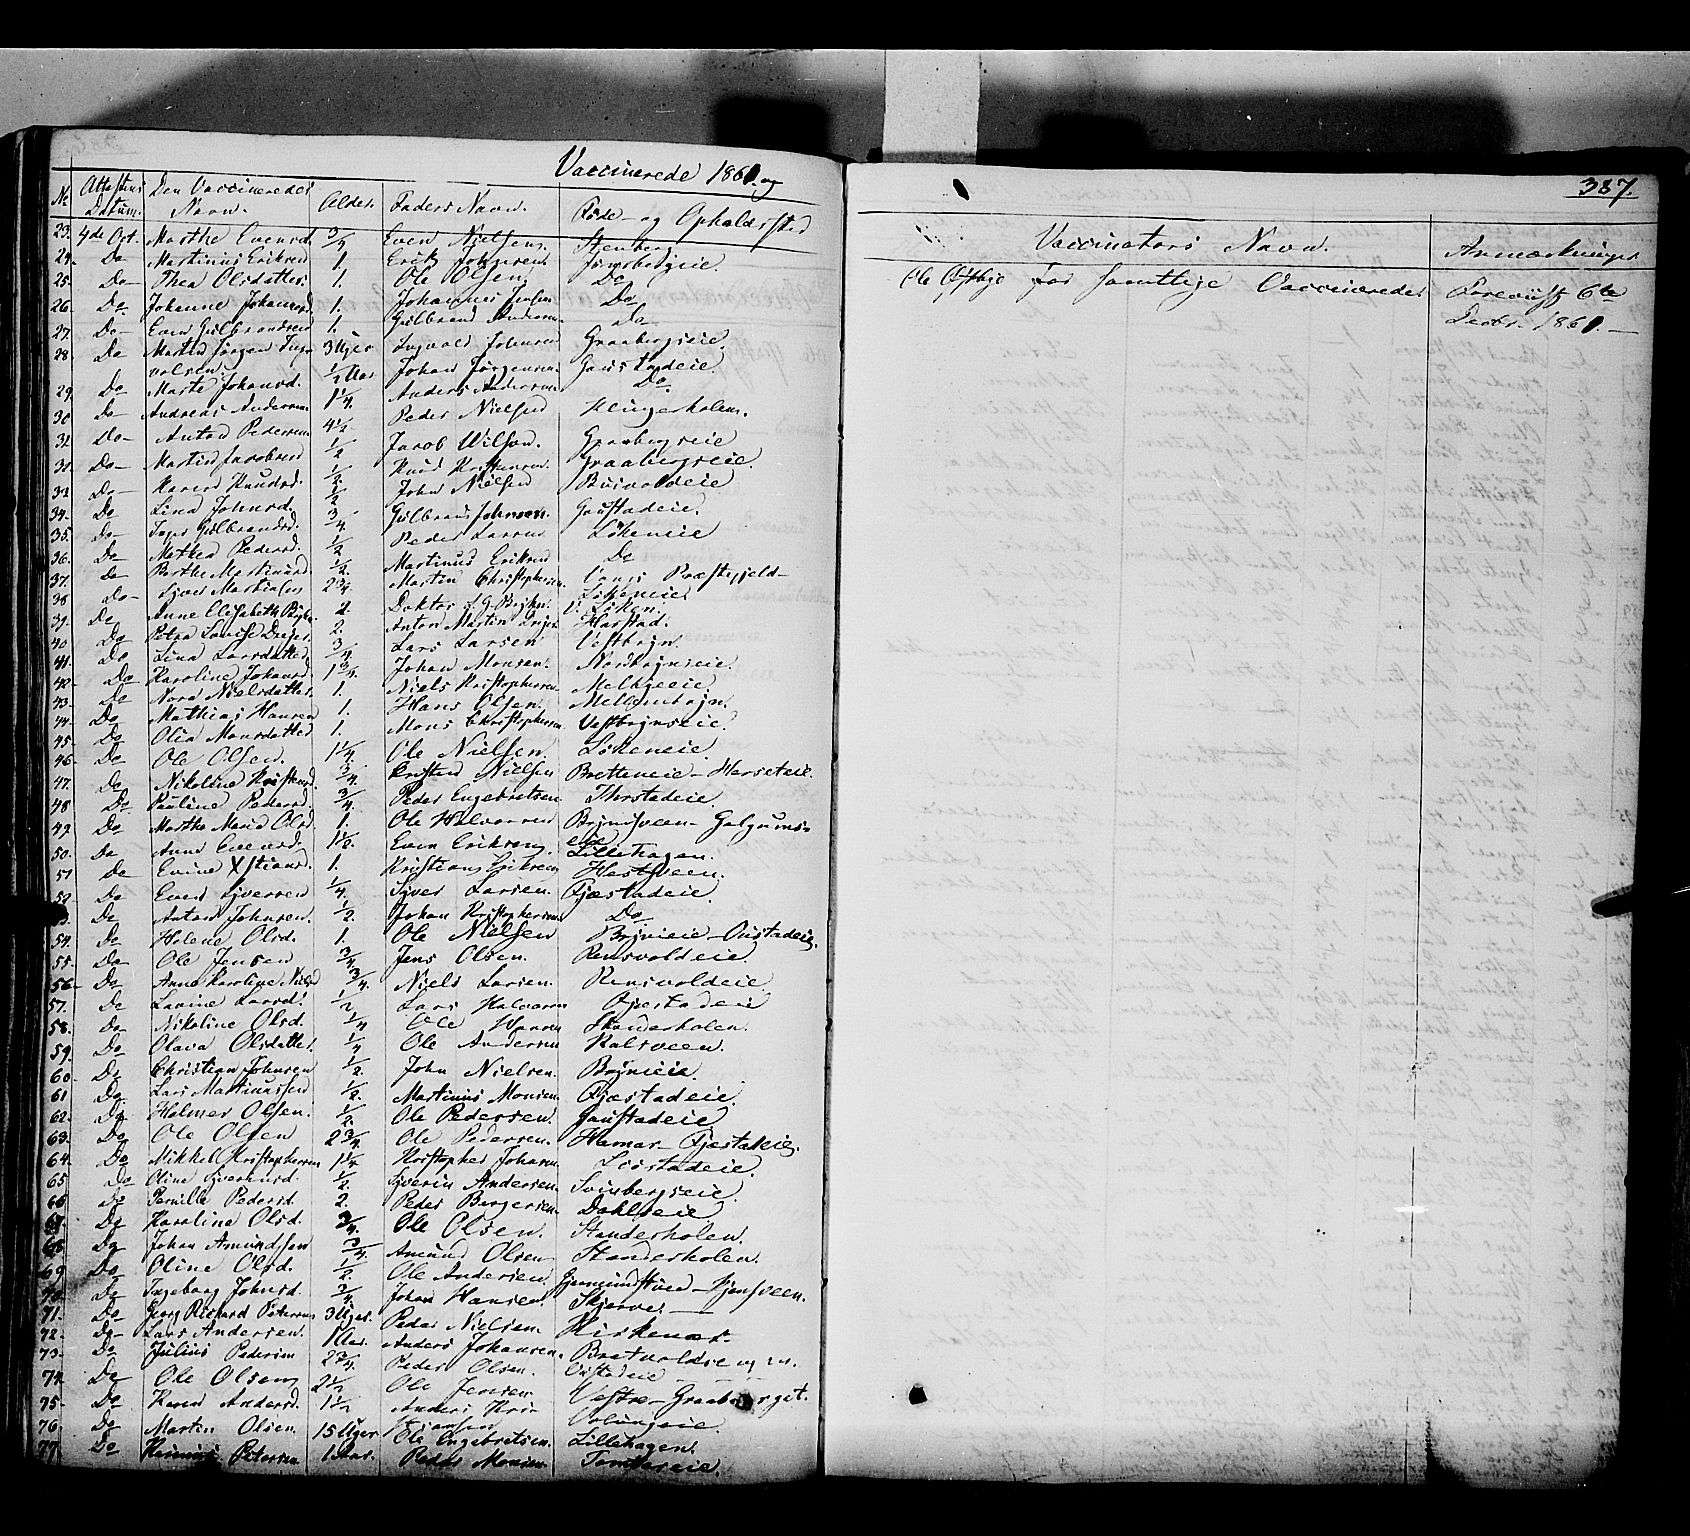 Vaccinerede 1861. og
387.
No Attestens Datum. Den Vaccineredes Navn. Alder. Faders Navn. Føde- og Opholdssted
Vaccinators Navn. Anmærkninger
23. 4de Oct. Marthe Evensd. 3/4 Even Nielsen. Stenberg
24. Do Martinus Eriksen 1. Erik Johnsen
25. Do Thea Olsdatter 1. Ole Olsen Do
26. Do Johanne Johannesd. 1. Johannes Do
27. Do Even Gulbrandsen 1. Gulbrand Andersen Do
28. Do Martin Jørgen Ingvalsen. 3 Uger Ingvald Johnsen Graabergseie.
29. Do Marte Johansd. 1/2 Aar Johan Jørgensen Gaustadeie
30 Do Andreas Andersen 1 1/4. Anders Andersen Do.
31 Do Anton Pedersen 4 1/2 Peder Nielsen Klingerholen.
Do Martin Jacobsen 1/2 Jacob Wilson. Graabergseie
Do Karen Knudsd. 1/2 Knud Kristensen. Graabergseie.
34. Do Lina Johnsd. 1/2 John Nielsen
35. Do Inger Gulbrandsd. 3/4 Gulbrand Johnsen. Gaustadeie.
36. Do Mathea Pedersd. 1/2 Peder Larsen Løkeneie
37. Do Berthe Martinusd. 1/2 Martinus Eriksen Do
38 Do Syver Martinsen 2 3/4. Martin Christophersen Vangs Præstegjeld- Løkeneie
39. Do Anne Elisabeth 2. Doktor v. Løken.
40 Do Petra Lovise 2. Anton Martin Harstad.
41. Do Lina Larsdatter 3/4 Lars Larsen Vestbygn.
42. Do Karoline Johansd. 1 3/4. Johan Monsen. Nordbygnseie.
43. Do Nora Nielsdatter 1. Niels Kristophersen
44. Do Mathias Hansen 1. Hans Olsen Mellembygn.
45. Do Olia Monsdatter 1. Mons Christophersen Vestbygnseie
46. Do Ole Olsen. 1 1/4. Ole Nielsen Løkeneie
47. Do Nikoline Kristensd. 3/4. Kristen Nielsen
48 Do Pauline Pedersd. 3/4. Peder Engebretsen
49. Do Marthe Maria Olsd. 1. Ole Halvorsen
50. Do Anne Evensd. 1 1/2. Even Eriksen Lillehagen.
51 Do Evine Xstiansd. 1. Kristian Eriksen
52. Do Even Syversen 1/4. Syver Larsen. Fjæstadeie
53. Do Anton Johnsen. 1/2. Johan Kristophersen Do
54. Do Helene Olsd. 1. Ole Nielsen
55. Do Ole Jensen 3/4 Jens Olsen. Rensvoldeie.
56. Do Anne Karoline Nielsd 3/4. Niels Larsen. Rensvoldeie
57. Do Lovine Larsd. 1/2 Lars Halvorsen Fjæstadeie
58. Do Nikoline Olsd. 1/4 Ole Hansen Standerholen.
59. Do Olava Olsdatter. 1/4 Ole Andersen Kalsveen.
60. Do Christian Johnsen 1/2. John Nielsen.
61 Do Lars Martinussen 1/2. Martinus Monsen Fjæstadeie.
62. Do Halmer Olsen. 1/2. Ole Pedersen. Gaustadeie
63. Do Ole Olsen 2 3/4. Ole Pedersen. Hamar- Fjæstadeie.
64. Do Mikkel Kristophersen 1 1/4. Kristopher Johansen
65 Do Oline Syverinsd. 1/2. Syverin Andersen. Svinbergseie.
66 Do Pernille Pedersd. 2. Peder Bergersen Dahlseie
67. Do Karoline Olsd. 3/4. Ole Olsen. Standerholen.
68 Do Johan Amundsen 3/4. Amund Olsen Standerholen.
69 Do Oline Olsd. 1/2. Ole Andersen.
70. Do Ingeborg Johnsd. 3/4 Johan Hansen. Skjerve.
71. Do Georg Richard Petersen 3 Uger. Peder Nielsen. Kirkenær
72. Do Lars Andersen. 1 Aar. Anders Johansen.
73. Do Julius Pedersen 2 3/4. Peder Olsen.
74. Do Ole Olsen 2 1/2 Ole Jensen Vestre-Graaberget.
75. Do Karen Andersd. 1 1/2 Anders Kristiansen
76. Do Marten Olsen. 15 Uger Ole Engebretsen. Lillehagen.
77. Do Petersen 1 Aar. Peder Monsen
Ole for samtlige Vaccinerede. 6te
Decbr. 1861.